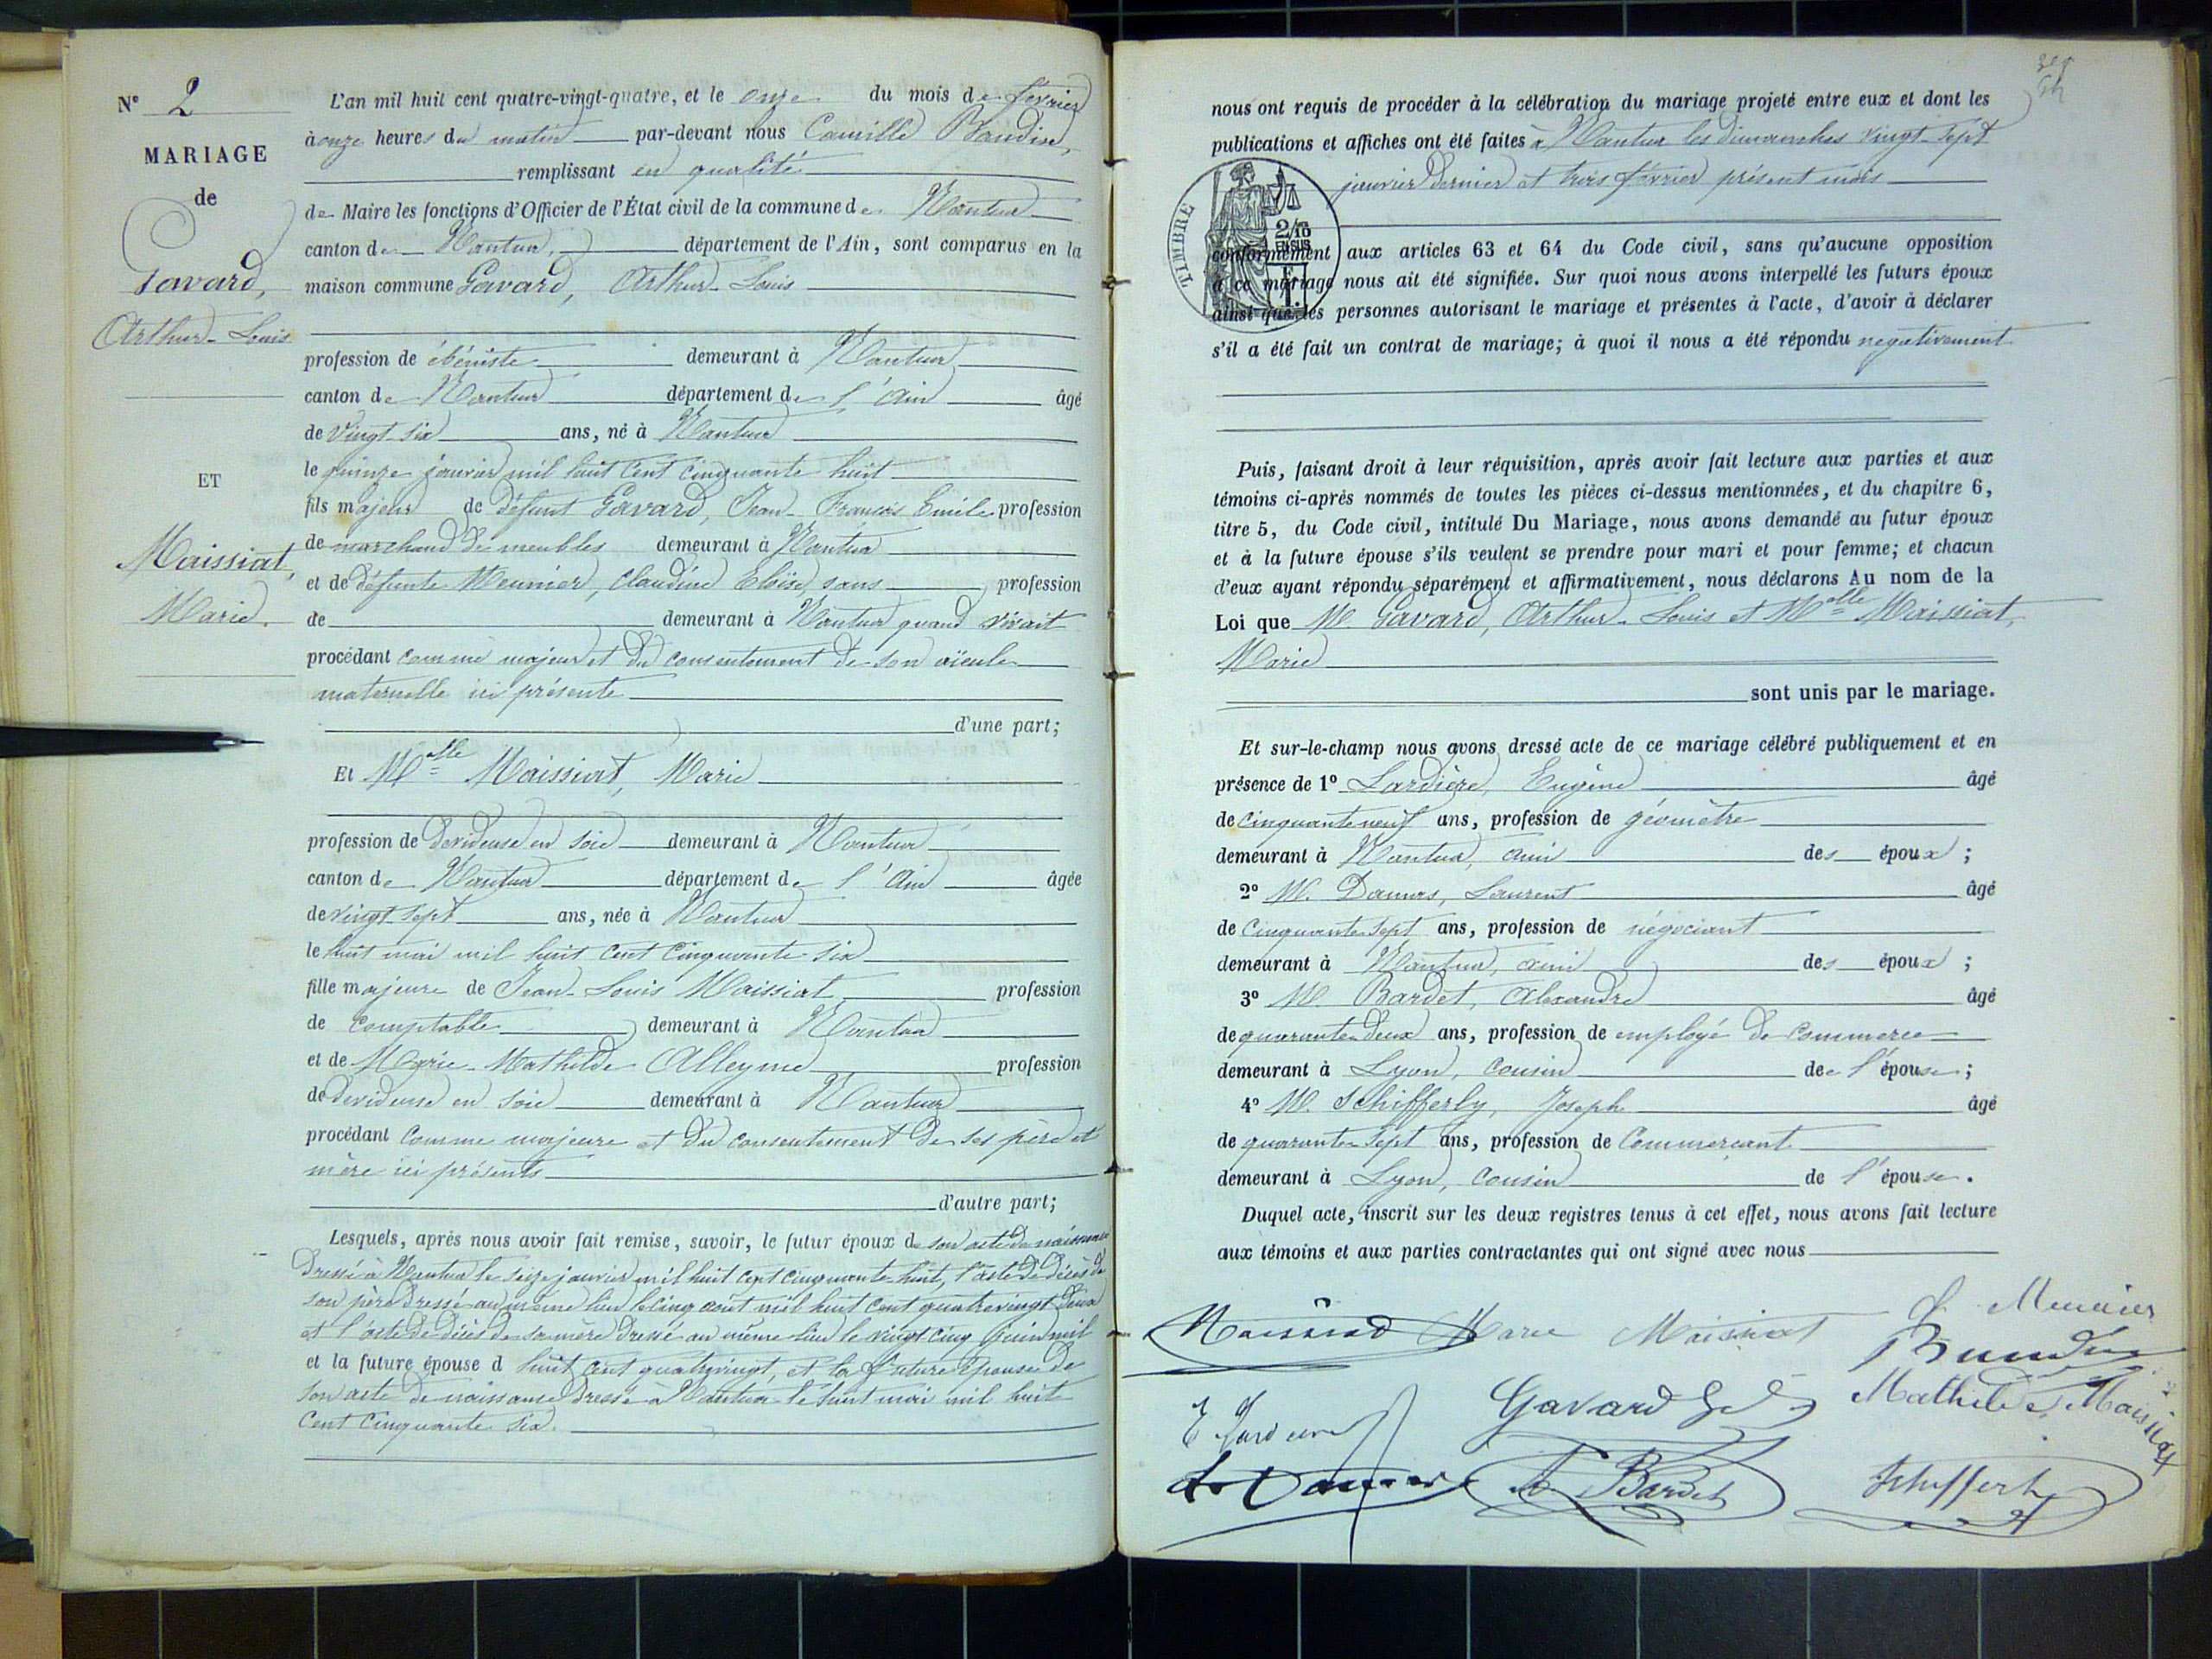 N° 2
MARIAGE
de
Gavard,
Arthur-Louis
ET
Maissiat,
Marie.
L'an mil huit cent quatre-vingt-quatre, et le onze du mois de février
à onze heures du matin par-devant nous Camille Baudin,
remplissant en qualité
de Maire les fonctions d'Officier de l'État civil de la commune de Nantua
canton de Nantua, département de l'Ain, sont comparus en la
maison commune Gavard, Arthur-Louis
profession de ébéniste demeurant à Nantua
canton de Nantua département de l'Ain âgé
de vingt six ans, né à Nantua
le quinze janvier mil huit cent cinquante huit
fils majeur de défunt Gavard, Jean-François Emile profession
de marchand de meubles demeurant à Nantua
et de défunte Meunier, Claudine Eloïse, sans profession
de demeurant à Nantua quand vivait
procédant comme majeur et du consentement de son aïeule
maternelle ici présente
d'une part;
Et Melle Maissiat, Marie
profession de devideuse en soie demeurant à Nantua
canton de Nantua département de l'Ain âgée
de vingt sept ans, née à Nantua
le huit mai mil huit cent cinquante six
fille majeure de Jean-Louis Maissiat profession
de comptable demeurant à Nantua
et de Marie-Mathilde Alleyme profession
de devideuse en soie demeurant à Nantua
procédant comme majeure et du consentement de ses père et
mère ici présents
d'autre part;
Lesquels, après nous avoir fait remise, savoir, le futur époux de son acte de naissance
dressé à Nantua le seize janvier mil huit cent cinquante-huit, l'acte de décès de
son père dressé au même lieu le cinq août mil huit cent quatre vingt deux
et l'acte de décès de sa mère dressé au même lieu le vingt cinq juin mil
et la future épouse d huit cent quatre vingt, et la future épouse de
son acte de naissance dressé à Nantua le huit mai mil huit
cent cinquante six.
nous ont requis de procéder à la célébration du mariage projeté entre eux et dont les
publications et affiches ont été faites à Nantua les dimanches vingt-sept
janvier dernier et trois février présent mois
TIMBRE
2/10
EN SUS
conformément aux articles 63 et 64 du Code civil, sans qu'aucune opposition
à ce mariage nous ait été signifiée. Sur quoi nous avons interpellé les futurs époux
ainsi que les personnes autorisant le mariage et présentes à l'acte, d'avoir à déclarer
s'il a été fait un contrat de mariage; à quoi il nous a été répondu negativement
Puis, faisant droit à leur réquisition, après avoir fait lecture aux parties et aux
témoins ci-après nommés de toutes les pièces ci-dessus mentionnées, et du chapitre 6,
titre 5, du Code civil, intitulé Du Mariage, nous avons demandé au futur époux
et à la future épouse s'ils veulent se prendre pour mari et pour femme; et chacun
d'eux ayant répondu séparément et affirmativement, nous déclarons Au nom de la
Loi que M Gavard, Arthur-Louis et Melle Maissiat,
Marie
sont unis par le mariage.
Et sur-le-champ nous avons dressé acte de ce mariage célébré publiquement et en
présence de 1° Lardière, Eugène âgé
de cinquante neuf ans, profession de géomètre
demeurant à Nantua, ami des époux;
2° M. Damas, Laurent âgé
de cinquante sept ans, profession de négociant
demeurant à Nantua, ami des époux;
3° M. Bardet, Alexandre âgé
de quarante deux ans, profession de employé de commerce
demeurant à Lyon, cousin de l'épouse;
4° M. Schifferly, Joseph âgé
de quarante sept ans, profession de Commerçant
demeurant à Lyon, cousin de l'épouse.
Duquel acte, inscrit sur les deux registres tenus à cet effet, nous avons fait lecture
aux témoins et aux parties contractantes qui ont signé avec nous
Maissiat Marie Maissiat Meunier
Baudin
Gavard Mathilde Maissiat
E Lardière
L. Damas Bardet Schifferly